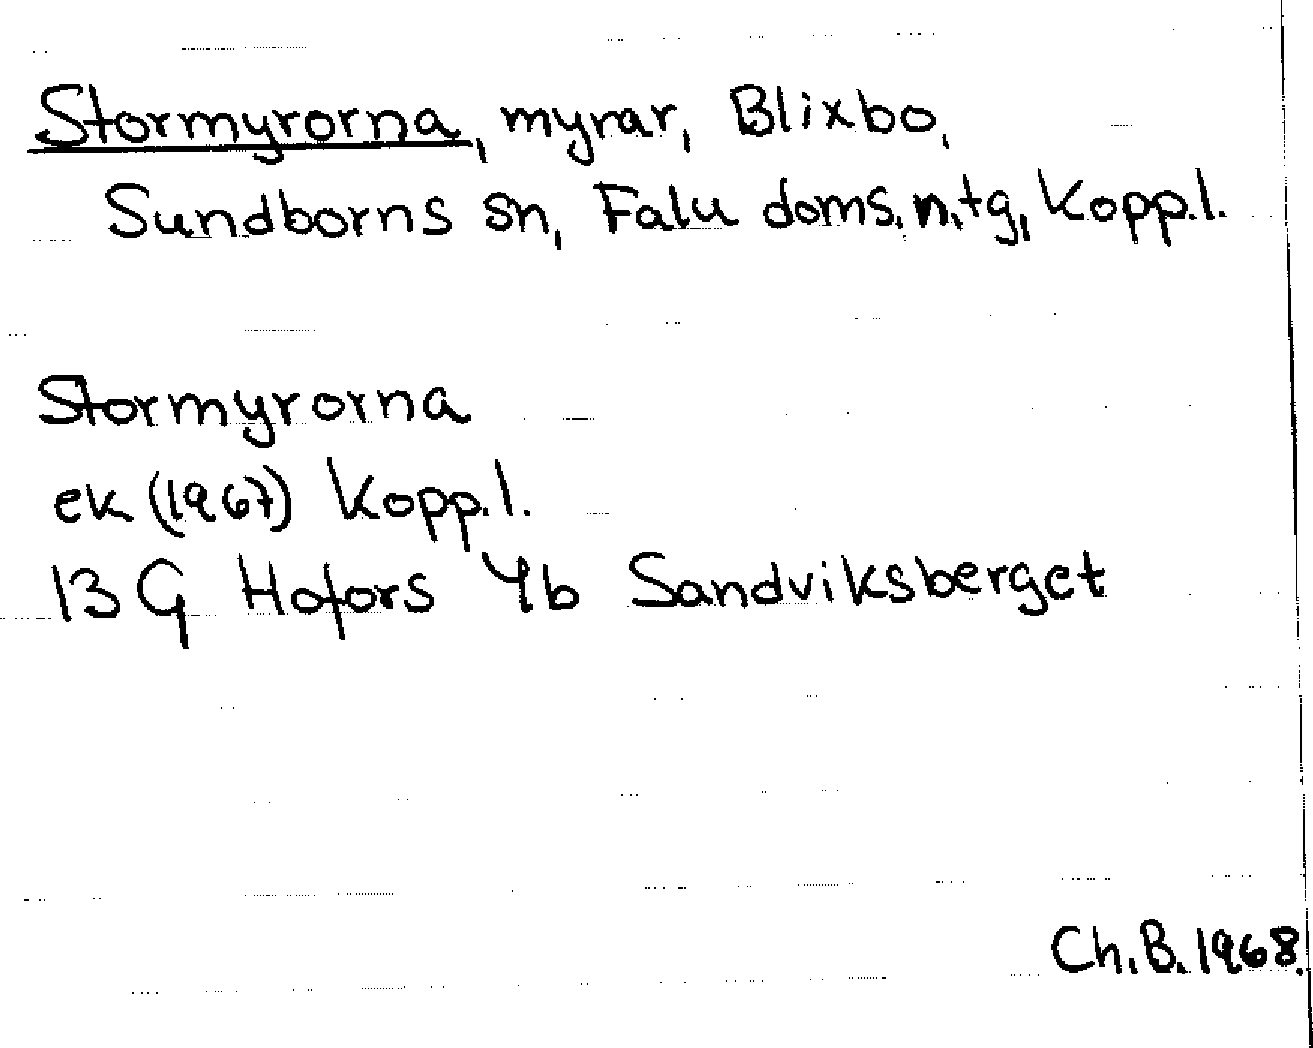 Stormyrorna, myrar, Blixbo,
Sundborns sn, Falu doms.n.tg, Kopp.l.
Stormyrorna
ek (1967) Kopp.l.
13 G Hofors 4b Sandviksberget
Ch.B.1968.